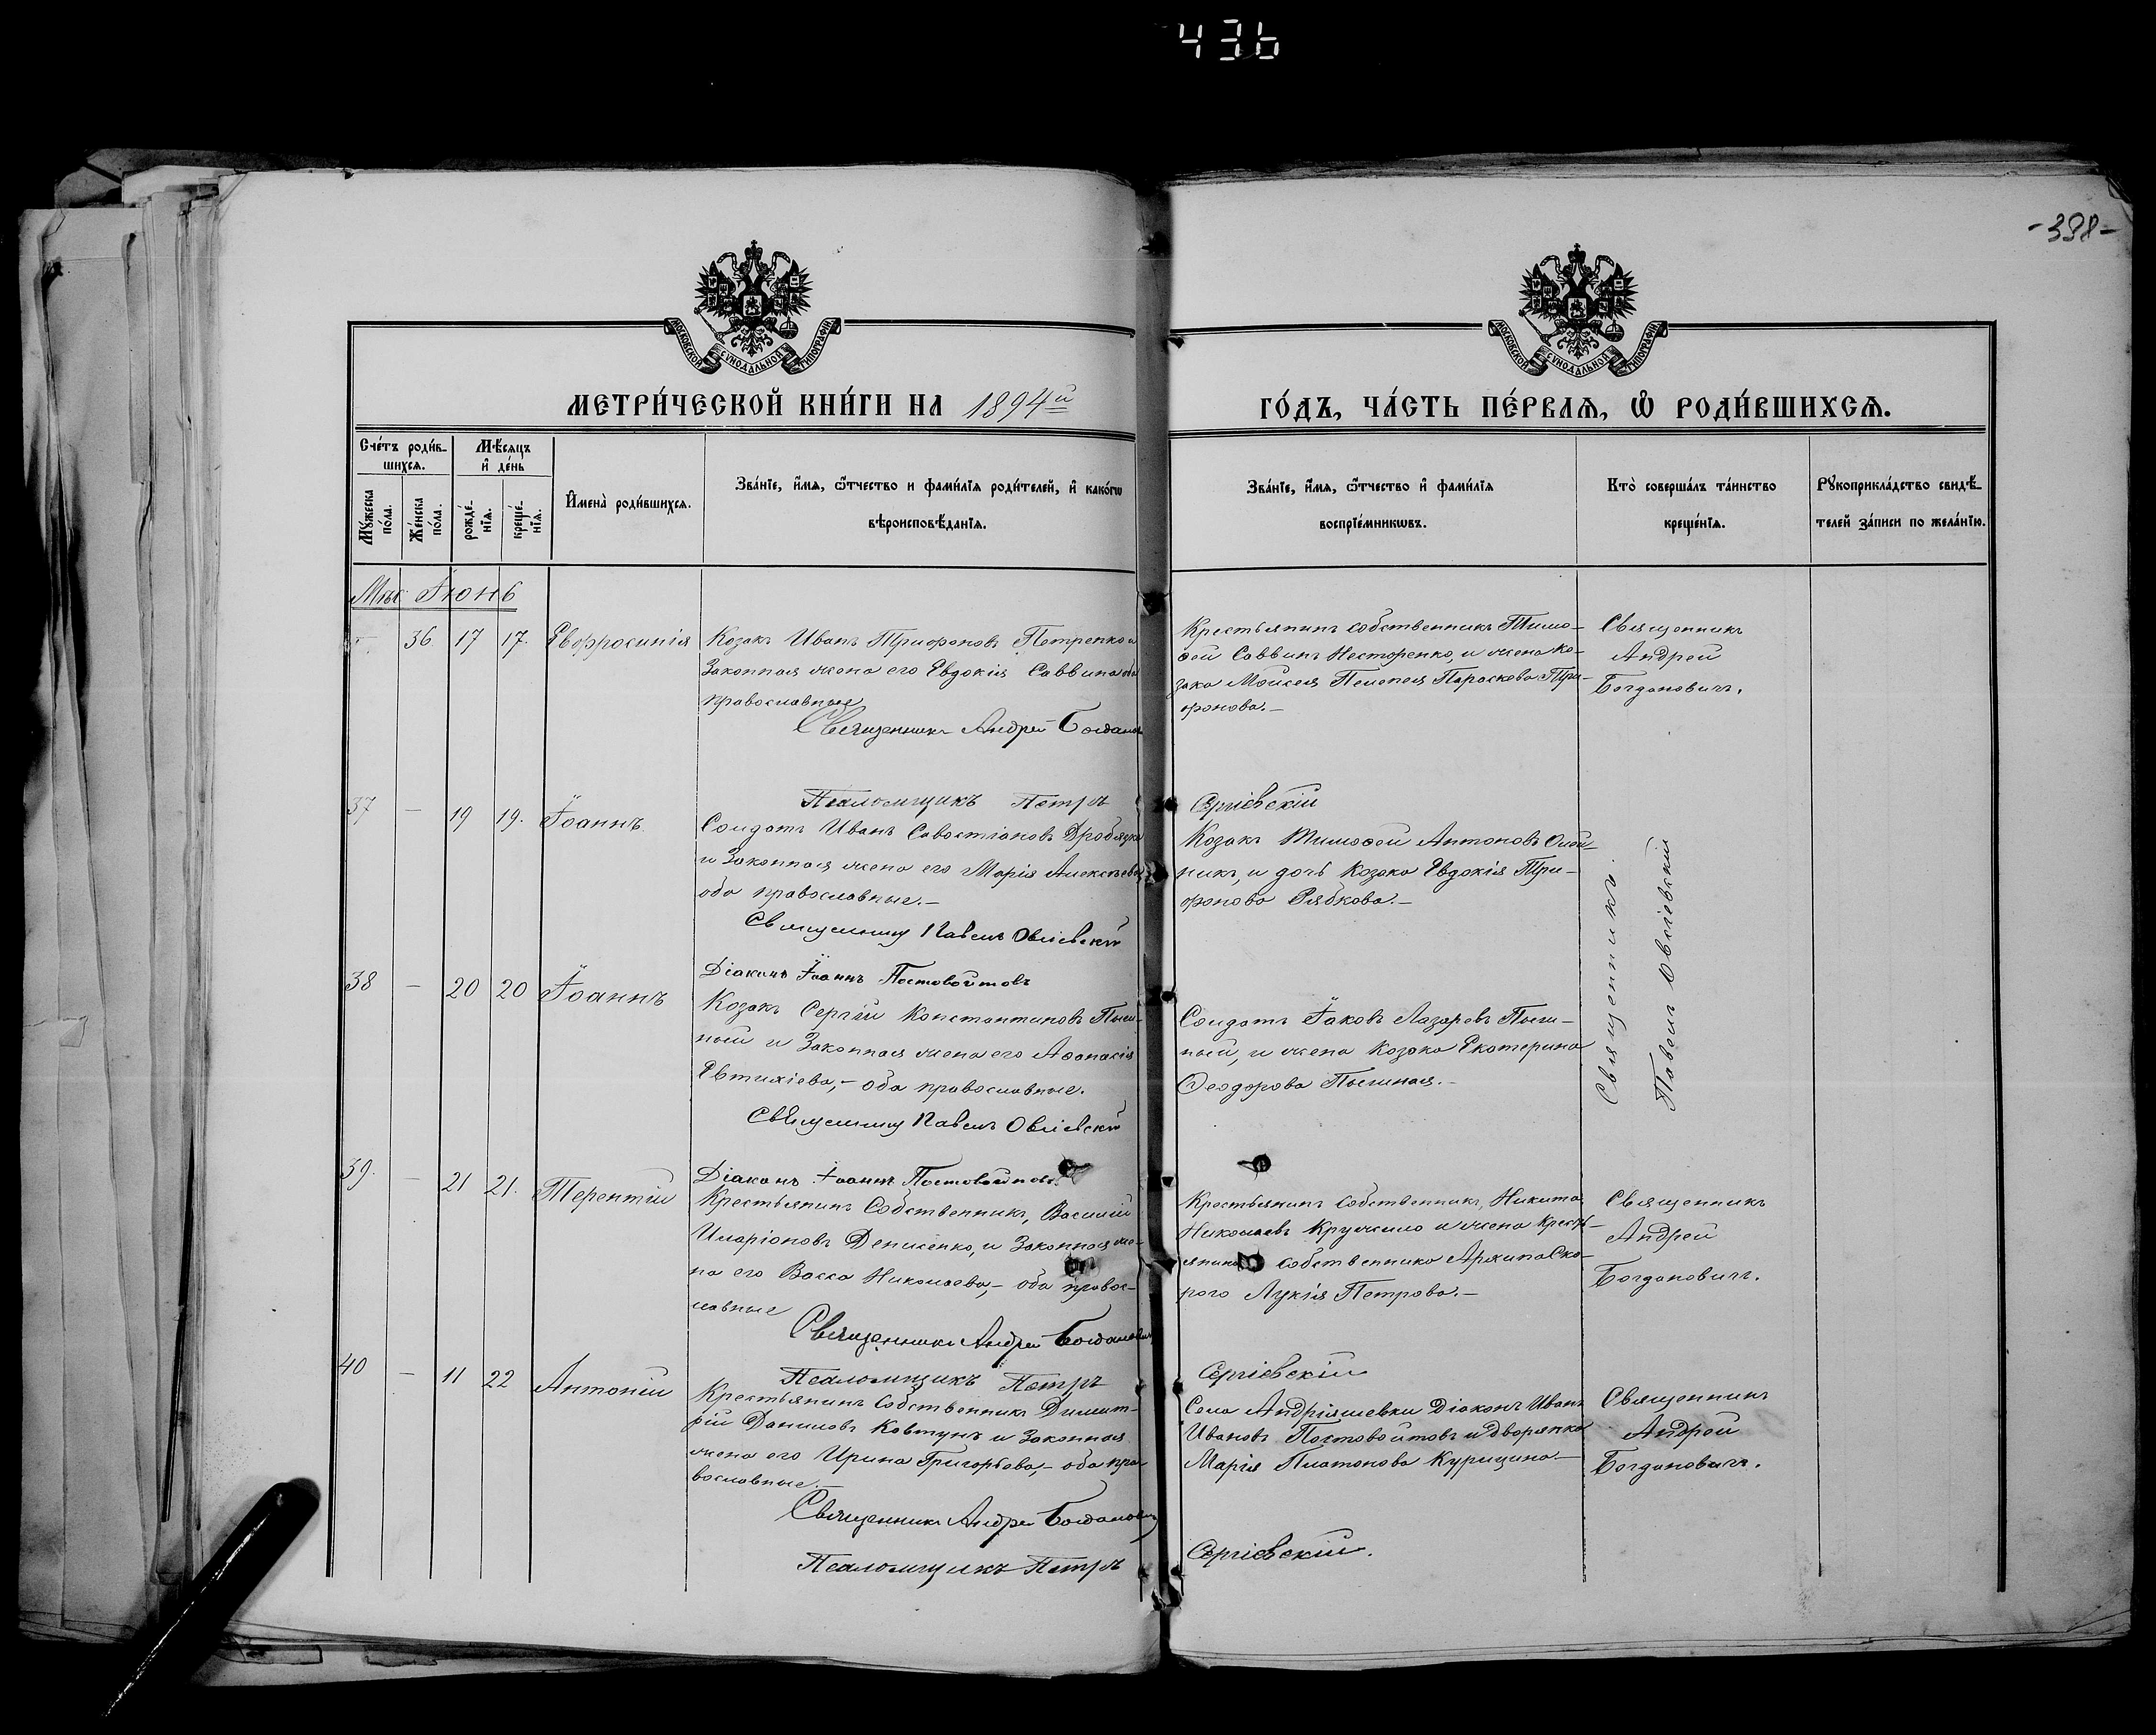 436
-398-
МОСКОВСКОЙ СѴНОДАЛЬНОЙ ТИПОГРАФІИ
МОСКОВСКОЙ СѴНОДАЛЬНОЙ ТИПОГРАФІИ
МЕТРИ́ЧЕСКОЙ КНИ́ГИ НА 1894й
ГО́ДЪ, ЧА́СТЬ ПЕ́РВАѦ, Ѽ РОДИ́ВШИХСѦ.
Сче́тъ роди́в-
шихсѧ.
Мꙋ́жеска
по́ла.
Же́нска
по́ла.
Мѣ́сѧцъ
и҆ де́нь
рожде́-
нїѧ.
креще́-
нїѧ.
И҆мена̀ роди́вшихсѧ.
Зва́нїе, и҆́мѧ, ѻ҆́тчество и фами́лїѧ роди́телей, и҆ како́гѡ
вѣроисповѣ́данїѧ.
Зва́нїе, и҆́мѧ, ѻ҆́тчество и҆ фами́лїѧ
воспрїе́мникѡвъ.
Кто̀ соверша́лъ та́инство
креще́нїѧ.
Рꙋкоприкла́дство свидѣ́-
телей за́писи по жела́нїю.
Мцъ Іюнь
36 17 17. Евфросинія
Козакъ Иванъ Трифоновъ Петренко и
Законная жена его Евдокія Саввина оба
православные
Священникъ Андрей Богданов
Крестьянинъ собственникъ Тимо-
ѳей Саввинъ Нестеренко, и жена ко-
зака Моисея Пелепея Параскева Три-
фонова.-
Священникъ
Андрей
Богдановичъ.
Псаломщикъ Петръ Сергіевскій
37 — 19 19. Іоаннъ
Солдатъ Иванъ Савостіановъ Дробязко
и Законная жена его Марія Алексѣева
оба православные.-
Священникъ Павелъ Овсіевскій
Козакъ Тимоѳей Антоновъ Олей-
никъ, и дочь Козака Евдокія Три-
фонова Рябкова.-
Священникъ
Павелъ Овсіевскій
Діаконъ Іоаннъ Постовойтовъ
38 — 20 20 Іоаннъ
Козакъ Сергій Константиновъ
и Законная жена его Аѳанасія
Евтихіева,- оба православные.
Священникъ Павелъ Овсіевскій
Солдатъ Іаковъ Лазаревъ
и жена козака Екатерина
Ѳеодорова
Діаконъ Іоаннъ Постовойтовъ
39. — 21 21. Терентій
Крестьянинъ Собственникъ, Василій
Иларіоновъ Денисенко, и Законная же-
на его Васса Николаева,- оба правос-
лавные
Священникъ Андрей Богданович
Крестьянинъ собственникъ, Никита
Николаевъ Кружило и жена кресть-
янина собственника Архипа Ско-
рого Лукія Петрова.-
Священникъ
Андрей
Богдановичъ.
Псаломщикъ Петръ Сергіевскій
40 — 11 22 Антоній
Крестьянинъ Собственникъ Димит-
рій Даниловъ Ковтунъ и Законная
жена его Ирина Григорьева,- оба пра-
вославные.-
Священникъ Андрей Богданович
Села Андріяшевки Діаконъ Иванъ
Ивановъ Постовойтовъ и дворянка
Марія Платонова Курицина-
Священникъ
Андрей
Богдановичъ.
Псаломщикъ Петръ Сергіевскій.